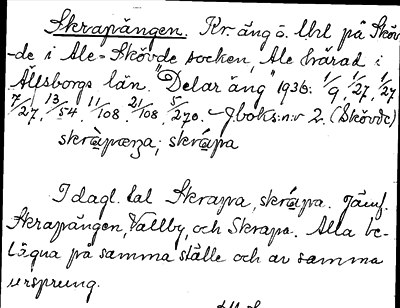 Skrapängen. Kr. äng ö. Utl på Sköv-
de i Ale-Skövde socken, Ale härad i
Älfsborgs län. "Delar äng" 1936: 1/9, 1/27, 1/27
7/27, 13/54, 11/108, 21/108, 5/270. Jboks:n:r 2. (Skövde)
skrapæŋa; skrapa
I dagl. tal Skrapa, skrapa. Jämf.
Skrapängen, Vallby, och Skrapa. Alla be-
lägna på samma ställe och av samma
ursprung.